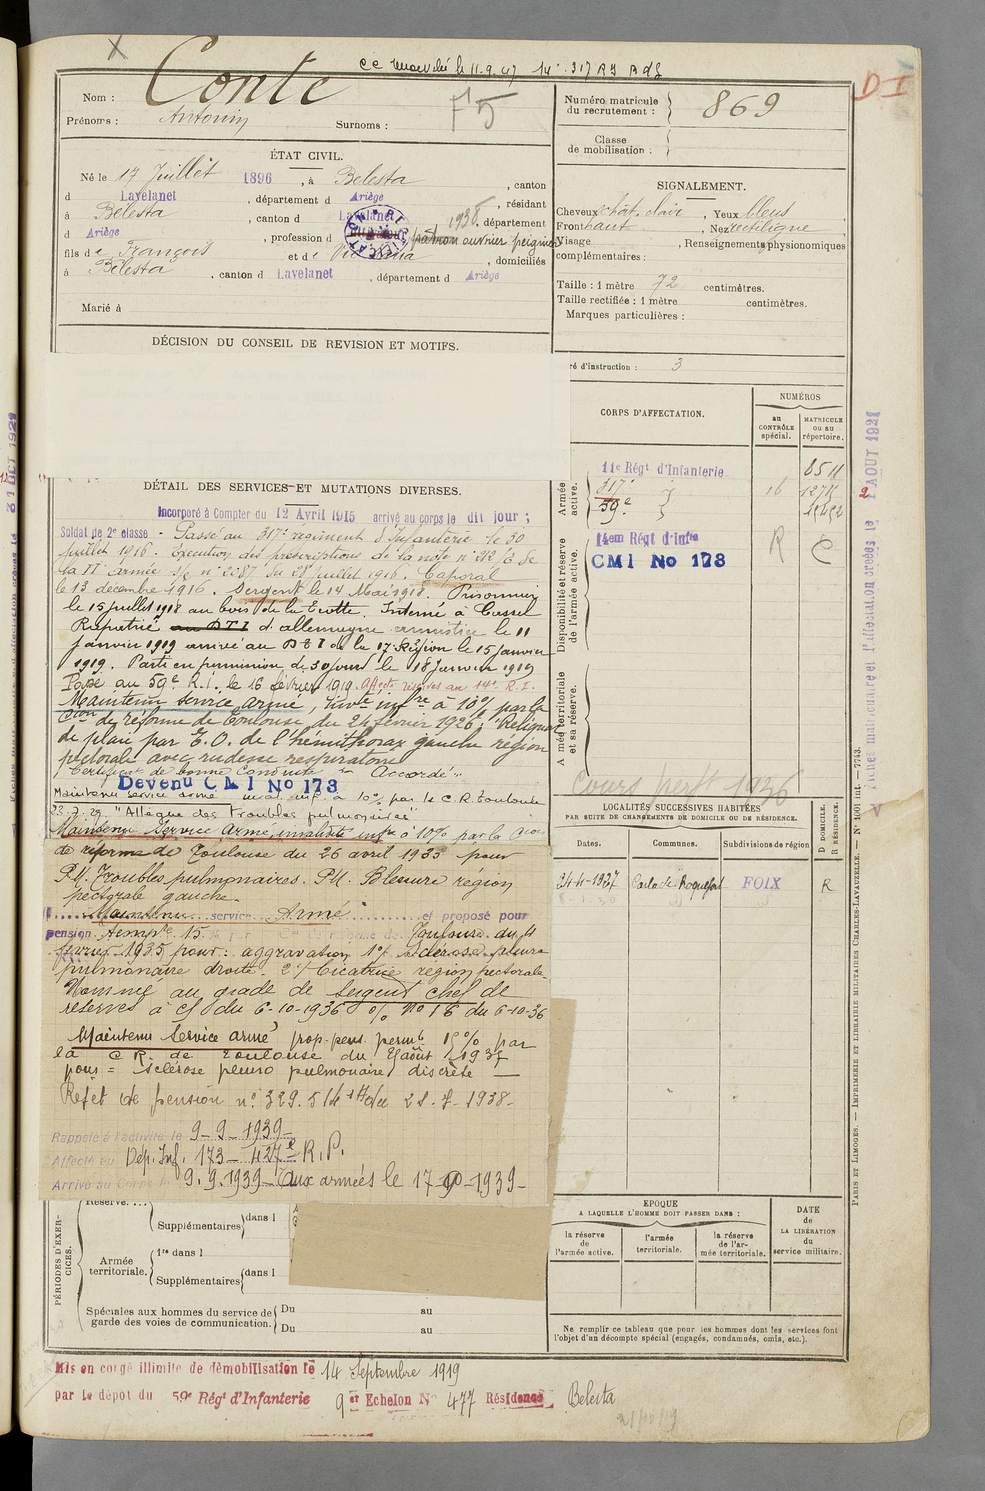 Conte
Nom :
Prénoms : Antonin Surnoms :
F5
Numéro matricule du recrutement : 869
Classe de mobilisation :
D I
ÉTAT CIVIL.
Né le 17 Juillet 1896, à Bélesta, canton
d Lavelanet, département d Ariège, résidant
à Bélesta, canton d Lavelanet, département
d Ariège, profession d patron ouvrier peignier
fils de François et de, domiciliés
à Bélesta, canton d Lavelanet, département d Ariège
Marié à
SIGNALEMENT.
Cheveux chât. clair, Yeux bleus,
Front haut, Nez rectiligne
Visage, Renseignements physionomiques
complémentaires :
Taille : 1 mètre 72 centimètres.
Taille rectifiée : 1 mètre centimètres.
Marques particulières :
DÉCISION DU CONSEIL DE REVISION ET MOTIFS.
ré d'instruction : 3
CORPS D'AFFECTATION.
NUMÉROS
au CONTRÔLE spécial.
MATRICULE ou au répertoire.
Armée active.
11e Régt d'Infanterie 8511
317e 16
59e
Disponibilité et réserve de l'armée active.
14em Régt d'Infie
CMI No 173
R C
A mée territoriale et sa réserve.
DÉTAIL DES SERVICES ET MUTATIONS DIVERSES.
Incorporé à Compter du 12 Avril 1915 arrivé au corps le dit jour ;
Soldat de 2e classe - Passé au 317e régiment d'Infanterie le 30
juillet 1916. Execution des prescriptions de la note n° 212
la IIe armée n° 2287 du 28 juillet 1916. Caporal
le 13 décembre 1916. Sergent le 14 Mai 1918. Prisonnier
le 15 juillet 1918 au bois de la Interné à Cassel
Rapatrié au DTI d'allemagne armistice le 11
janvier 1919 arrivé au D E I de la 17e Région le 15 janvier
1919. Parti en permission de 30 jours le 18 Janvier 1919
Passé au 59e R.I. le 16 février 1919. Affecté réserves au 14e R.I.
Maintenu service armé, invté infre à 10% par la
Cion de réforme de Toulouse du 24 février 1926
de plaie par E.O. de l'hémithorax gauche région
pectorale avec rudesse respiratoire
Certificat de bonne Conduite "Accordé"
Devenu C M I No 173
Maintenu service armé inval. inf. à 10% par la C.R. Toulouse
23.7.29 "Allègue des troubles pulmonaires"
Maintenu Service Armé, invalidité infre à 10% par la Cion
de réforme de Toulouse du 26 avril 1933 pour
P.M. Troubles pulmonaires. P.M. Blessure région
pectorale gauche.
Maintenu service Armé et proposé pour
pension temp're 15 % par Cion de réforme de Toulouse du 4
février 1935 pour : aggravation 1°/ sclérose pleuro
pulmonaire droite. 2°/ Cicatrice région pectorale
Nommé au grade de Sergent chef de
réserves à cf du 6-10-1936 % No 16 du 6-10-36
Maintenu Service armé prop. pens. permte 15% par
la C R. de Toulouse du août 1937
pour = Sclérose pleuro pulmonaire discrète —
Rejet de pension n° 329.514 du 28-7-1938-
Rappelé à l'activité le 9-9-1939-
Affecté au Dép. Inf. 173 - 427e R.P.
Arrivé au Corps le 9.9.1939 - aux armées le 17-9-1939-
Cours perft 1936
LOCALITÉS SUCCESSIVES HABITÉES
PAR SUITE DE CHANGEMENTS DE DOMICILE OU DE RÉSIDENCE.
Dates. Communes. Subdivisions de région
D DOMICILE. R RÉSIDENCE.
24-4-1937 Carla de Roquefort FOIX R
8-1-30
EPOQUE
A LAQUELLE L'HOMME DOIT PASSER DANS :
la réserve de l'armée active.
l'armée territoriale.
la réserve de l'armée territoriale.
DATE de LA LIBÉRATION du service militaire.
Ne remplir ce tableau que pour les hommes dont les services font
l'objet d'un décompte spécial (engagés, condamnés, omis, etc.).
PÉRIODES D'EXERCICES.
Réserve....
Supplémentaires dans l
Armée territoriale.
1re dans l
Supplémentaires dans l
Spéciales aux hommes du service de garde des voies de communication.
Du au
Du au
Mis en congé illimité de démobilisation le 14 Septembre 1919
par le dépôt du 59e Régt d'Infanterie 9er Echelon No 477 Résidence Bélesta
PARIS ET LIMOGES. — IMPRIMERIE ET LIBRAIRIE MILITAIRES CHARLES-LAVAUZELLE. — N° 1001 int. — 7743.